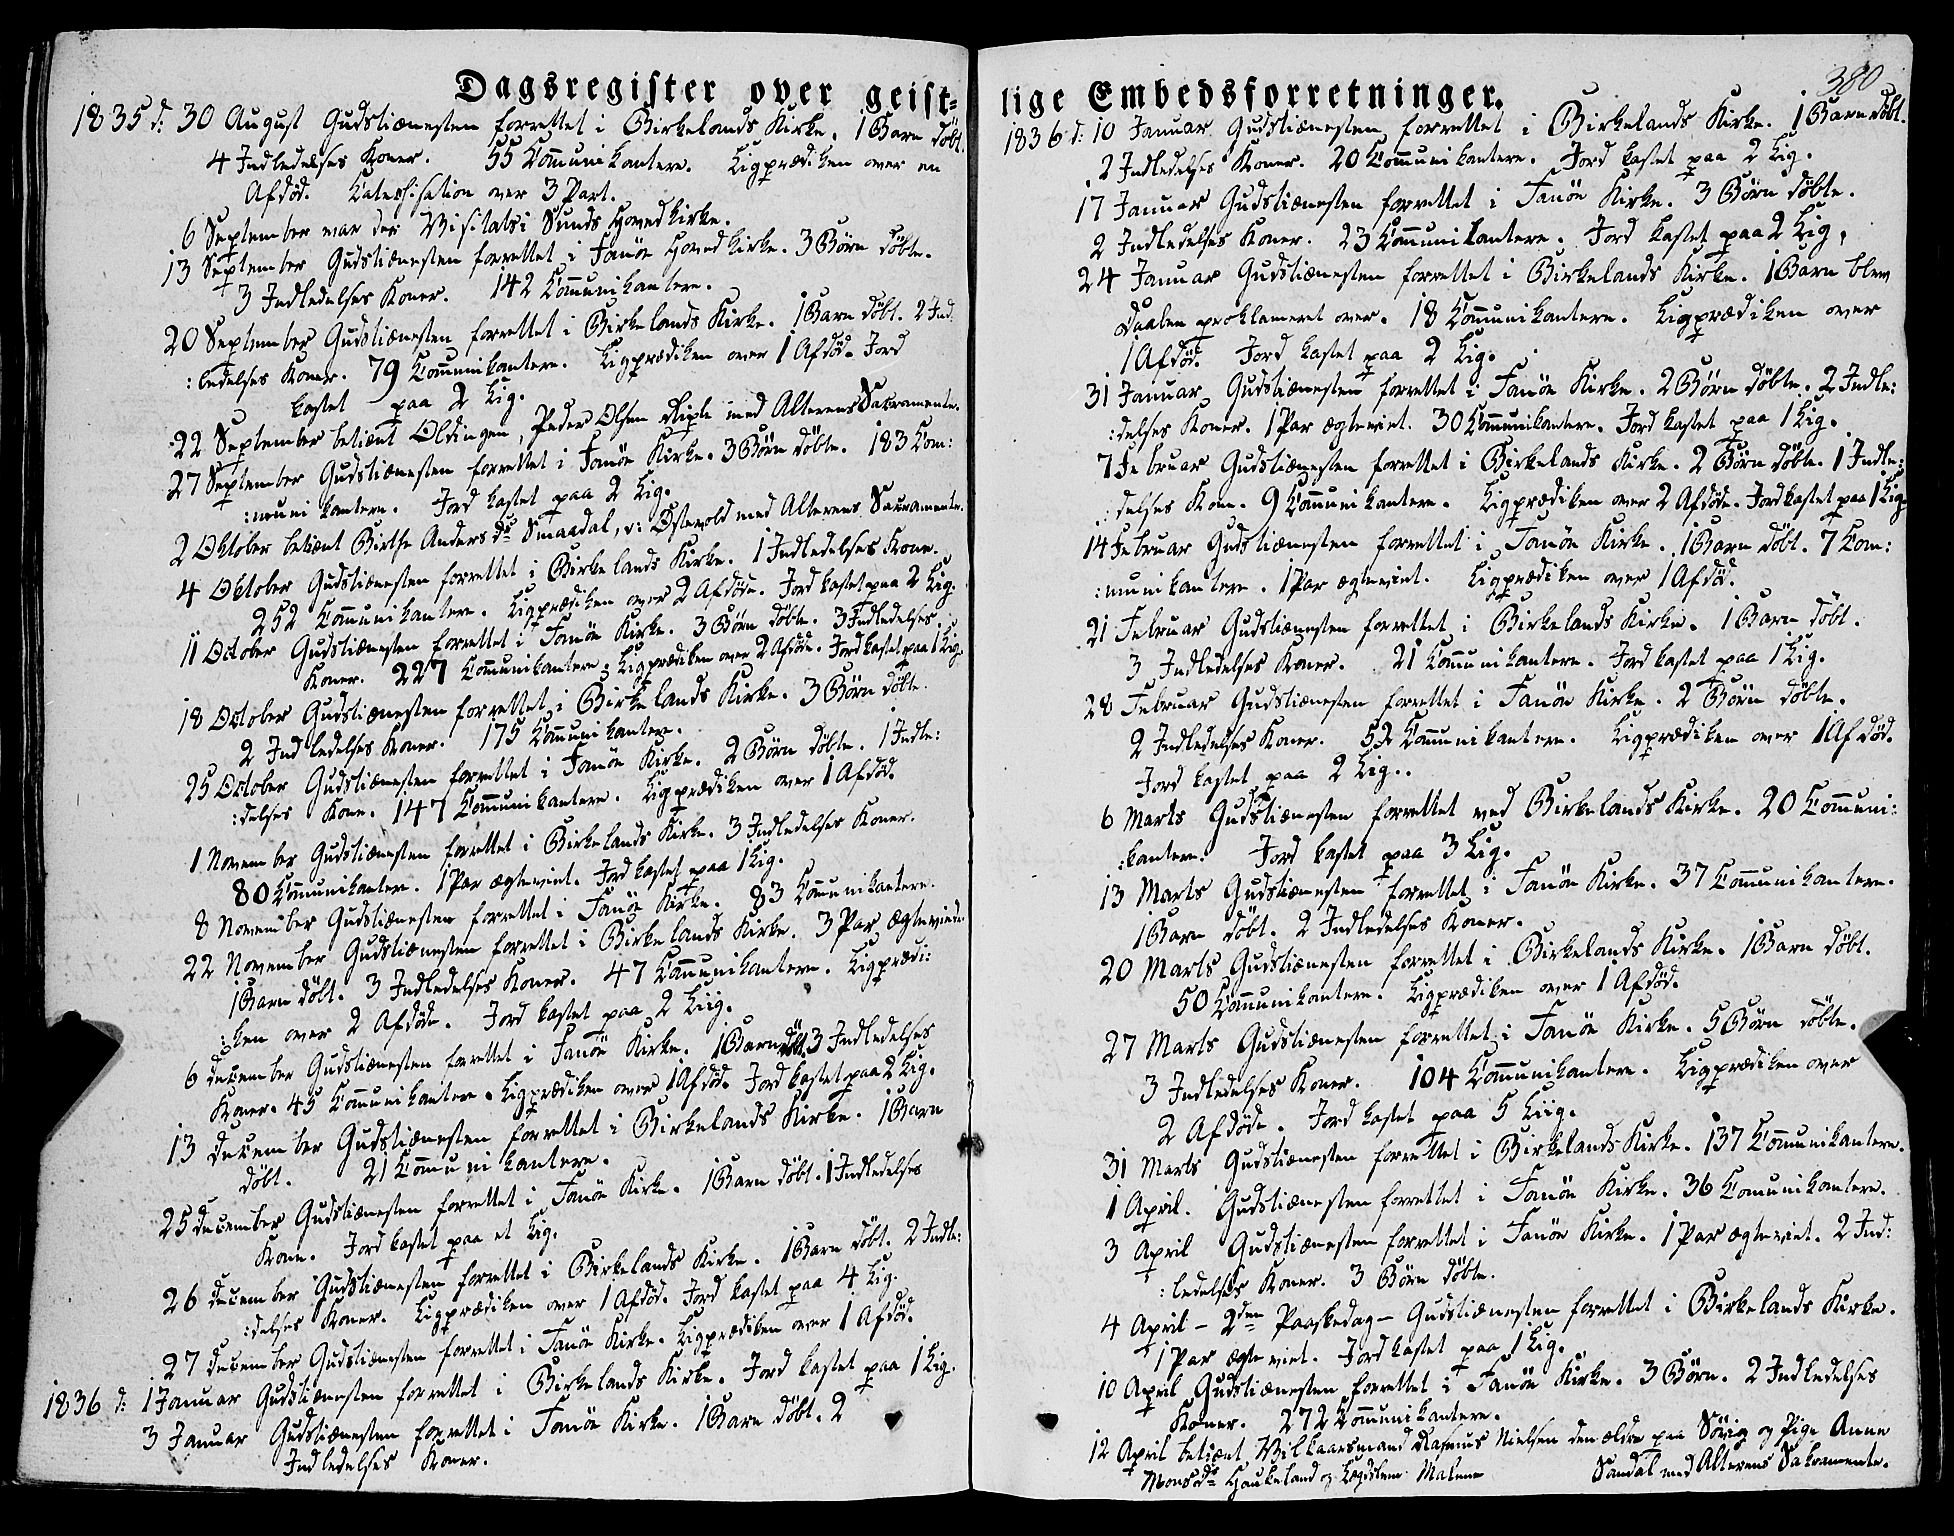 Dagsregister over geist=
1835 d: 30 August Gudstiænesten forrettet i Birkelands Kirke. 1 Barn døbt.
4 Indledelses Koner. 55 Com̄unikantere. Ligprædiken over en
Afdød. Catechisation over 3 Part.
6 September var der Visitats i Sunds Hovedkirke.
13 September Gudstiænesten forrettet i Fanöe Hovedkirke. 3 Börn döbte.
3 Indledelses Koner. 142 Com̄unikantere.
20 September Gudstiænesten forrettet i Birkelands Kirke. 1 Barn döbt. 2 Ind
:ledelses Koner. 79 Com̄unikantere. Ligprædiken over 1 Afdød. Jord
kastet paa 2 Lig.
22 September betiænt Oldingen, Peder Olsen med Alterens Sacramente.
27 September Gudstiænesten forrettet i Fanöe Kirke. 3 Börn döbte. 183 Com:
:munikantere. Jord kastet paa 2 Lig.
2 Oktober betiænt Birthe Anders d: Smaadal, v: Østevold med Alterens Sacramente.
4 Oktober Gudstiænesten forrettet i Birkelands Kirke. 1 Indledelses Kone.
252 Com̄unikantere. Ligprædiken over 2 Afdøde. Jord kastet paa 2 Lig.
11 October Gudstiænesten forrettet i Fanöe Kirke. 3 Börn döbte. 3 Indledelses
Koner. 227 Com̄unikantere. Ligprædiken over 2 Afdøde. Jord kastet paa 1 Lig.
18 October Gudstiænesten forrettet i Birkelands Kirke. 3 Börn döbte.
2 Indledelses Koner. 175 Com̄unikantere.
25 October Gudstiænesten forrettet i Fanöe Kirke. 2 Börn döbte. 1 Indle:
:delses Kone. 147 Com̄unikantere. Ligprædiken over 1 Afdød.
1 November Gudstiænesten forrettet i Birkelands Kirke. 3 Indledelses Koner.
80 Com̄unikantere. 1 Par ægteviet. Jord kastet paa 1 Lig.
8 November Gudstiænesten forrettet i Fanöe Kirke. 83 Com̄unikantere.
22 November Gudstiænesten forrettet i Birkelands Kirke. 3 Par ægteviede.
1 Barn döbt. 3 Indledelses Koner. 47 Com̄unikantere. Ligprædi:
:ken over 2 Afdøde. Jord kastet paa 2 Liig.
6 december Gudstiænesten forrettet i Fanöe Kirke. 1 Barn döbt. 3 Indledelses
Koner. 45 Com̄unikantere. Ligprædiken over 1 Afdød. Jord kastet paa 2 Lig.
13 december Gudstiænesten forrettet i Birkelands Kirke. 1 Barn
döbt. 21 Com̄unikantere.
25 december Gudstiænesten forrettet i Fanöe Kirke. 1 Barn döbt. 1 Indledelses
Kone. Jord kastet paa et Lig.
26 december Gudstiænesten forrettet i Birkelands Kirke. 1 Barn döbt. 2 Indle:
:delses Koner. Ligprædiken over 1 Afdød. Jord kastet paa 4 Lig.
27 december Gudstiænesten forrettet i Fanöe Kirke. Ligprædiken over 1 Afdød.
1836 d: 1 Januar Gudstiænesten forrettet i Birkelands Kirke. Jord kastet paa 1 Lig.
3 Januar Gudstiænesten forrettet i Fanöe Kirke. 1 Barn döbt. 2
Indledelses Koner.
380
lige Embedsforretninger.
1836 d: 10 Januar Gudstiænesten forrettet i Birkelands Kirke. 1 Barn döbt.
2 Indledelses Koner. 20 Com̄unikantere. Jord kastet paa 2 Lig.
17 Januar Gudstiænesten forrettet i Fanöe Kirke. 3 Börn döbte.
2 Indledelses Koner. 23 Com̄unikantere. Jord kastet paa 2 Lig.
24 Januar Gudstiænesten forrettet i Birkelands Kirke. 1 Barn blev
Daaben proklameret over. 18 Com̄unikantere. Ligprædiken over
1 Afdød. Jord kastet paa 2 Lig.
31 Januar Gudstiænesten forrettet i Fanöe Kirke. 2 Börn döbte. 2 Indle:
:delses Koner. 1 Par ægteviet. 30 Com̄unikantere. Jord kastet paa 1 Lig.
7 Februar Gudstiænesten forrettet i Birkelands Kirke. 2 Börn döbte. 1 Indle:
:delses Kone. 9 Com̄unikantere. Ligprædiken over 2 Afdøde. Jord kastet paa 1 Lig.
14 Februar Gudstiænesten forrettet i Fanöe Kirke. 1 Barn döbt. 7 Com:
:munikantere. 1 Par ægteviet. Ligprædiken over 1 Afdød.
21 Februar Gudstiænesten forrettet i Birkelands Kirke. 1 Barn döbt.
3 Indledelses Koner. 21 Com̄unikantere. Jord kastet paa 1 Lig.
28 Februar Gudstiænesten forrettet i Fanöe Kirke. 2 Börn döbte.
2 Indledelses Koner. 52 Com̄unikantere. Ligprædiken over 1 Afdød.
Jord kastet paa 2 Lig.
6 Marts Gudstiænesten forrettet ved Birkelands Kirke. 20 Com̄uni:
:kantere. Jord kastet paa 3 Lig.
13 Marts Gudstiænesten forrettet i Fanöe Kirke. 37 Com̄unikantere.
1 Barn döbt. 2 Indledelses Koner.
20 Marts Gudstiænesten forrettet i Birkelands Kirke. 1 Barn döbt.
50 Com̄unikantere. Ligprædiken over 1 Afdød.
27 Marts Gudstiænesten forrettet i Fanöe Kirke. 5 Börn döbte.
3 Indledelses Koner. 104 Com̄unikantere. Ligprædiken over
2 Afdøde. Jord kastet paa 5 Liig.
31 Marts Gudstiænesten forrettet i Birkelands Kirke. 137 Com̄unikantere.
1 April. Gudstiænesten forrettet i Fanöe Kirke. 36 Com̄unikantere.
3 April Gudstiænesten forrettet i Fanöe Kirke. 1 Par ægteviet. 2 Ind:
:ledelses Koner. 3 Börn döbte.
4 April - 2den Paaskedag - Gudstiænesten forrettet i Birkelands Kirke.
1 Par ægteviet. Jord kastet paa 1 Lig.
10 April Gudstiænesten forrettet i Fanöe Kirke. 3 Börn. 2 Indledelses
Koner. 272 Com̄unikantere.
12 April betiænt Vilkaarsmand Rasmus Nielsen den ældre paa Sövig og Pige Anne
Monsd: Haukeland og Malene Sandal med Alterens Sakramente.